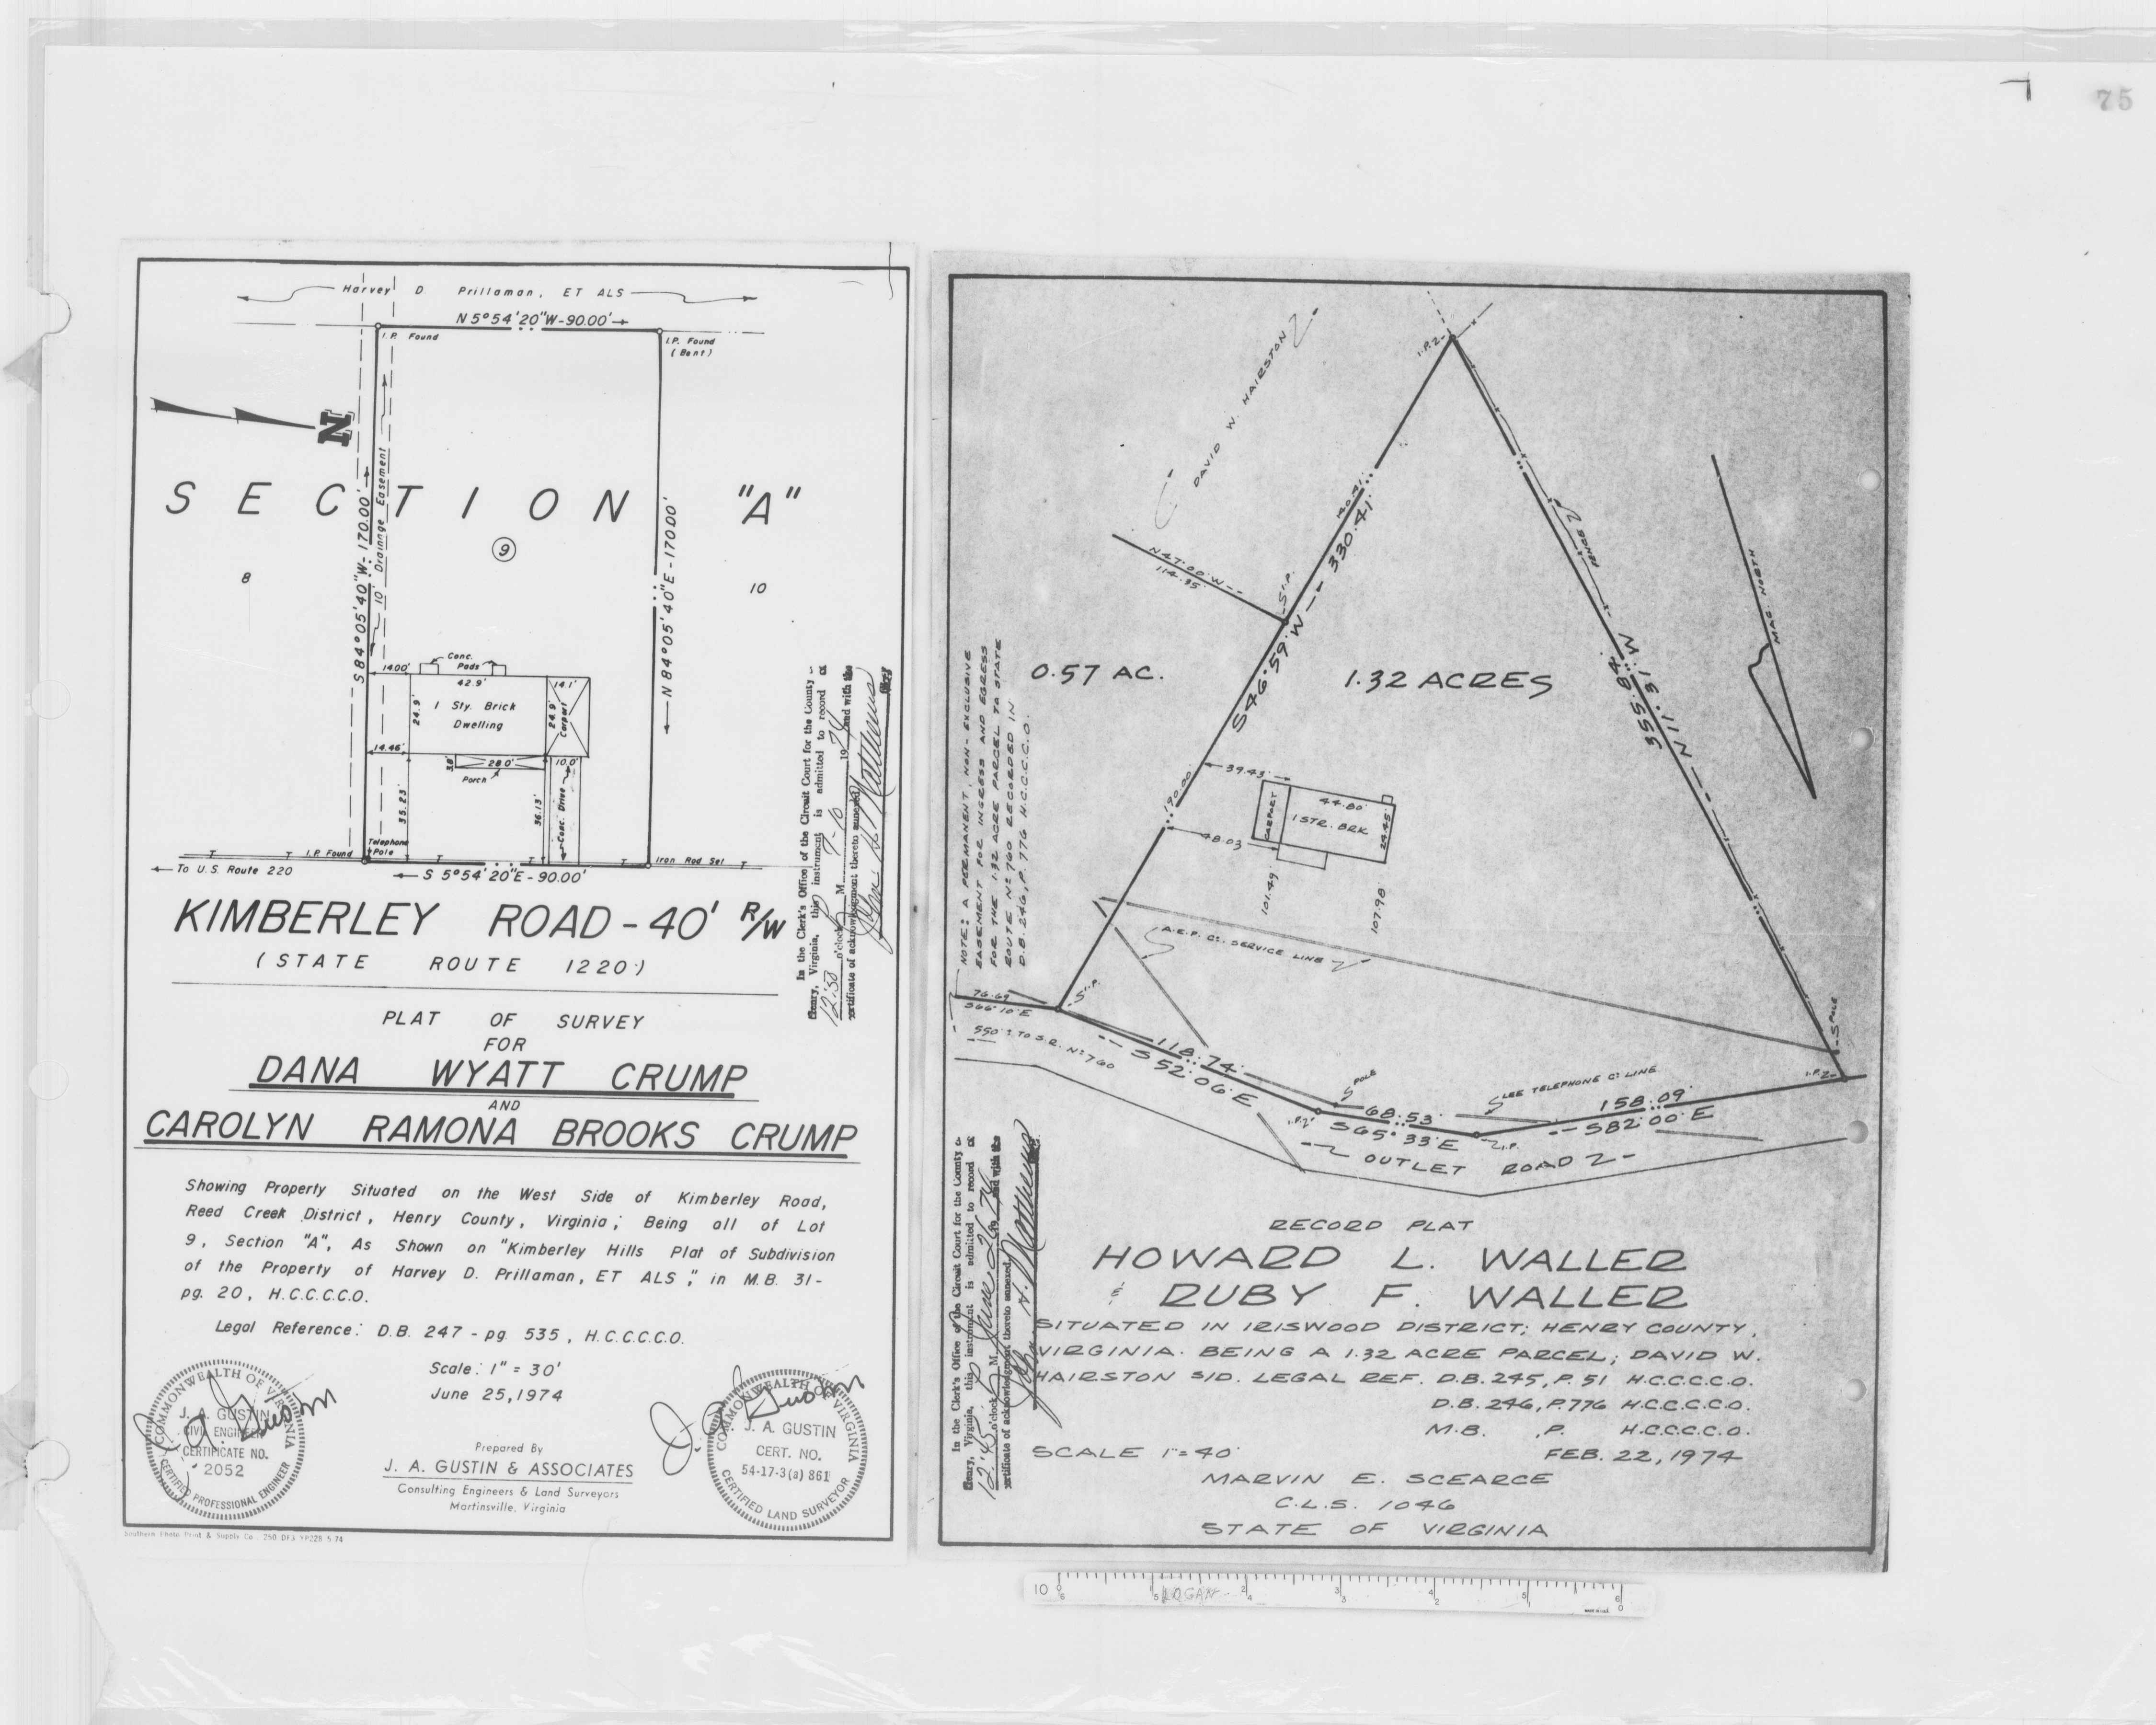 75
Harvey D. Prillaman, ET ALS
N 5°54'20"W-90.00'
I.P. Found
I.P. Found
(Bent)
N
S 84°05'40"W-170.00'
10' Drainage Easement
N 84°05'40"E-170.00'
SECTION "A"
9
8
10
Conc.
Pads
14.00'
42.9'
14.1'
24.9'
1 Sty. Brick
Dwelling
24.9'
Carport
14.46'
3.8'
28.0'
10.0'
Porch
35.23'
36.13'
Conc. Drive
Telephone
Pole
I.P. Found
Iron Rod Set
To U.S. Route 220
S 5°54'20"E-90.00'
KIMBERLEY ROAD-40' R/W
(STATE ROUTE 1220)
PLAT OF SURVEY
FOR
DANA WYATT CRUMP
AND
CAROLYN RAMONA BROOKS CRUMP
Showing Property Situated on the West Side of Kimberley Road,
Reed Creek District, Henry County, Virginia; Being all of Lot
9, Section "A", As Shown on "Kimberley Hills Plat of Subdivision
of the Property of Harvey D. Prillaman, ET ALS," in M.B. 31-
pg. 20, H.C.C.C.C.O.
Legal Reference: D.B. 247-pg. 535, H.C.C.C.C.O.
Scale: 1" = 30'
June 25, 1974
Prepared By
J. A. GUSTIN & ASSOCIATES
Consulting Engineers & Land Surveyors
Martinsville, Virginia
COMMONWEALTH OF VIRGINIA
J. A. GUSTIN
CIVIL ENGINEER
CERTIFICATE NO.
2052
CERTIFIED PROFESSIONAL ENGINEER
J. A. Gustin
COMMONWEALTH OF VIRGINIA
J. A. GUSTIN
CERT. NO.
54-17-3(a) 861
CERTIFIED LAND SURVEYOR
J. A. Gustin
Southern Photo Print & Supply Co.
In the Clerk's Office of the Circuit Court for the County
Henry, Virginia, this 7-10 instrument is admitted to record
12:30 o'clock P M. 1974 and with the
certificate of acknowledgment thereto annexed
John H. Matthews
DAVID W. HAIRSTON
I.P.
N 47°00'W
114.35
I.P.
140.41
S46°59'W -- 330.41
FENCE
355.84
N11°31'W
MAG. NORTH
0.57 AC.
1.32 ACRES
NOTE: A PERMANENT, NON-EXCLUSIVE
EASEMENT FOR INGRESS AND EGRESS
FOR THE 1.32 ACRE PARCEL TO STATE
ROUTE No 760 RECORDED IN
D.B. 246, P. 776 H.C.C.C.C.O.
190.00
39.43
CARPORT
44.80
1 STR. BRK
24.45
48.03
101.49
107.98
A.E.P. Co. SERVICE LINE
76.69
S66°10'E
550' ± TO S.R. No 760
I.P.
118.74
S52°06'E
POLE
LEE TELEPHONE Co. LINE
POLE
I.P.
I.P.
68.53
S65°33'E
I.P.
158.09
S82°00'E
OUTLET ROAD
RECORD PLAT
HOWARD L. WALLER
& RUBY F. WALLER
SITUATED IN IRISWOOD DISTRICT; HENRY COUNTY,
VIRGINIA. BEING A 1.32 ACRE PARCEL; DAVID W.
HAIRSTON S/D. LEGAL REF. D.B. 245, P. 51 H.C.C.C.C.O.
D.B. 246, P. 776 H.C.C.C.C.O.
M.B. , P. H.C.C.C.C.O.
SCALE 1"=40'
FEB. 22, 1974
MARVIN E. SCEARCE
C.L.S. 1046
STATE OF VIRGINIA
In the Clerk's Office of the Circuit Court for the County
Henry, Virginia, this instrument is admitted to record
12:45 o'clock P M. June 26 1974 and with the
certificate of acknowledgment thereto annexed
John H. Matthews
10
LOGAN